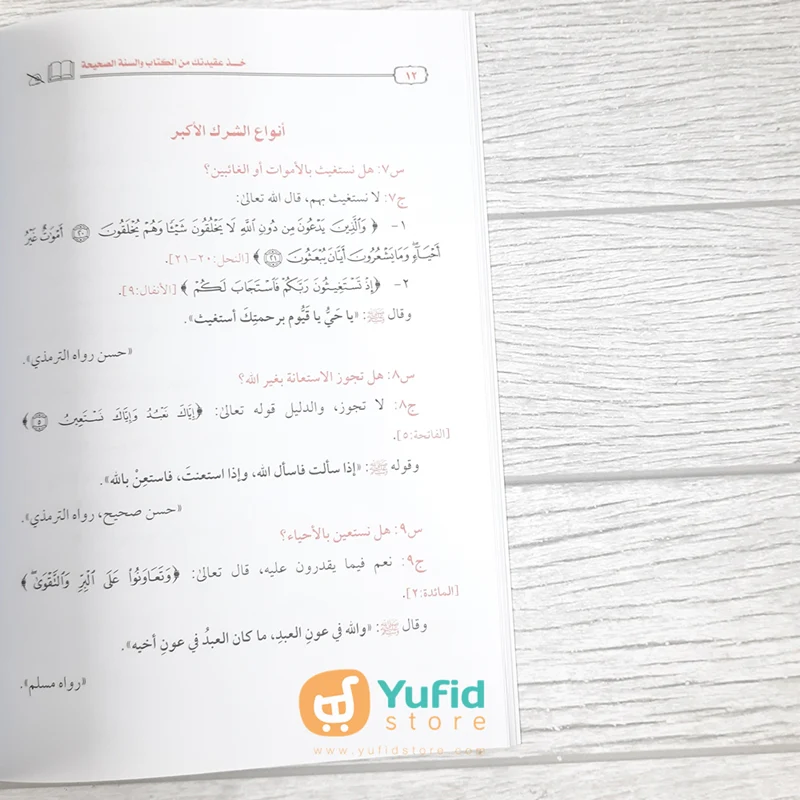 ١٢
خذ عقيدتك من الكتاب والسنة الصحيحة
أنواع الشرك الأكبر
س٧: هل نستغيث بالأموات أو الغائبين؟
ج٧: لا نستغيث بهم، قال الله تعالىٰ:
١- ﴿ وَالَّذِينَ يَدْعُونَ مِن دُونِ اللَّهِ لَا يَخْلُقُونَ شَيْئًا وَهُمْ يُخْلَقُونَ ٢٠ أَمْوَاتٌ غَيْرُ
أَحْيَاءٍ وَمَا يَشْعُرُونَ أَيَّانَ يُبْعَثُونَ ٢١ ﴾ [النحل: ٢٠-٢١].
٢- ﴿ إِذْ تَسْتَغِيثُونَ رَبَّكُمْ فَاسْتَجَابَ لَكُمْ ﴾ [الأنفال: ٩].
وقال ﷺ: «يا حَيُّ يا قَيُّوم برحمتِكَ أستغيث».
«حسن رواه الترمذي».
س٨: هل تجوز الاستعانة بغير الله؟
ج٨: لا تجوز، والدليل قوله تعالىٰ: ﴿ إِيَّاكَ نَعْبُدُ وَإِيَّاكَ نَسْتَعِينُ ٥ ﴾
[الفاتحة: ٥].
وقوله ﷺ: «إذا سألت فاسأل الله، وإذا استعنتَ، فاستعِنْ بالله».
«حسن صحيح، رواه الترمذي».
س٩: هل نستعين بالأحياء؟
ج٩: نعم فيما يقدرون عليه، قال تعالىٰ: ﴿ وَتَعَاوَنُوا عَلَى الْبِرِّ وَالتَّقْوَىٰ ﴾
[المائدة: ٢].
وقال ﷺ: «والله في عونِ العبدِ، ما كان العبدُ في عونِ أخيه».
«رواه مسلم».
Yufid
store
www.yufidstore.com